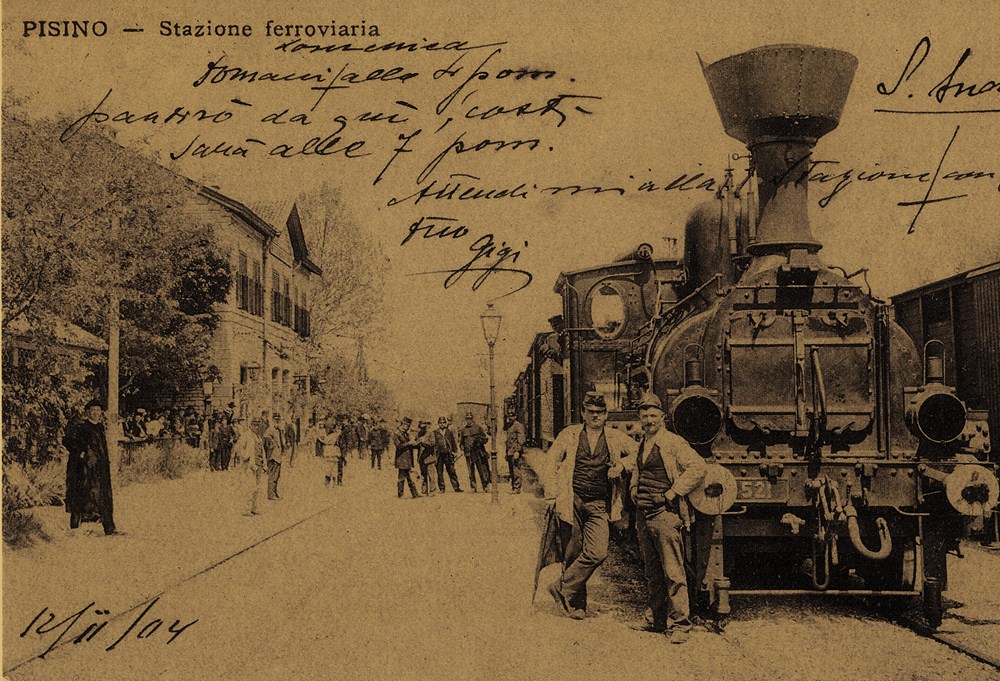 PISINO — Stazione ferroviaria
domenica
Domani alle 4 pom.
partirò da qui, costì
sarà alle 7 pom.
S. And
Attendimi alla Stazione con
tuo
Gigi
12/II/04
52